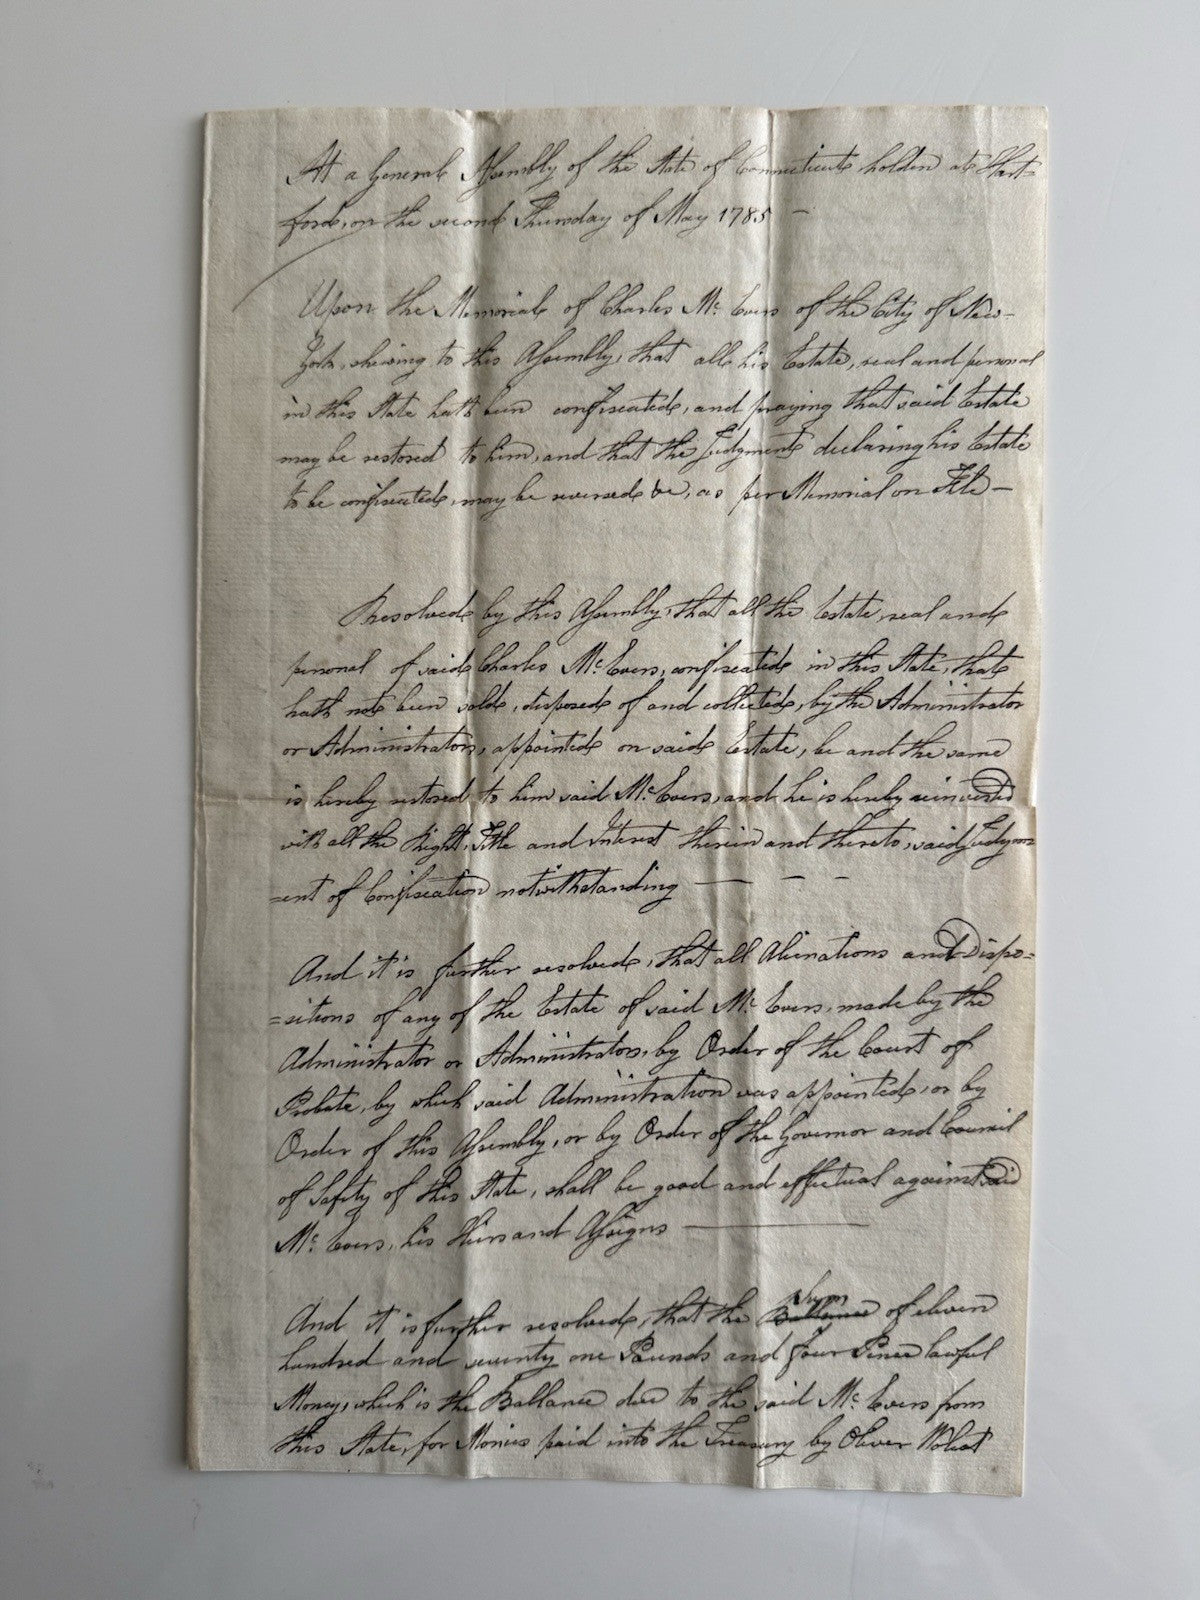 At a General Assembly of the State of Connecticut holden at Hart-
ford, on the second Thursday of May 1785 —
Upon the Memorial of Charles Mc. Evers of the City of New-
York, shewing to this Assembly, that all his Estate, real and personal
in this State hath been confiscated, and praying that said Estate
may be restored to him, and that the Judgment declaring his Estate
to be confiscated, may be reversed &c, as per Memorial on File —
Resolved by this Assembly, that all the Estate, real and
personal of said Charles Mc. Evers, confiscated in this State, that
hath not been sold, disposed of and collected, by the Administrator
or Administrators, appointed on said Estate, be and the same
is hereby restored to him said Mc. Evers, and he is hereby reinvested
with all the Right, Title and Interest therein and thereto, said Judgm=
=ent of Confiscation notwithstanding — - -
And it is further resolved, that all Alienations and Dispo=
=sitions of any of the Estate of said Mc. Evers, made by the
Administrator or Administrators, by Order of the Court of
Probate, by which said Administration was appointed, or by
Order of this Assembly, or by Order of the Governor and Council
of Safety of this State, shall be good and effectual against said
Mc. Evers, his Heirs and Assigns —
Sum
And it is further resolved, that the Ballance of eleven
hundred and seventy one Pounds and four Pence lawful
Money, which is the Ballance due to the said Mc. Evers from
this State, for Monies paid into the Treasury by Oliver Wolcot